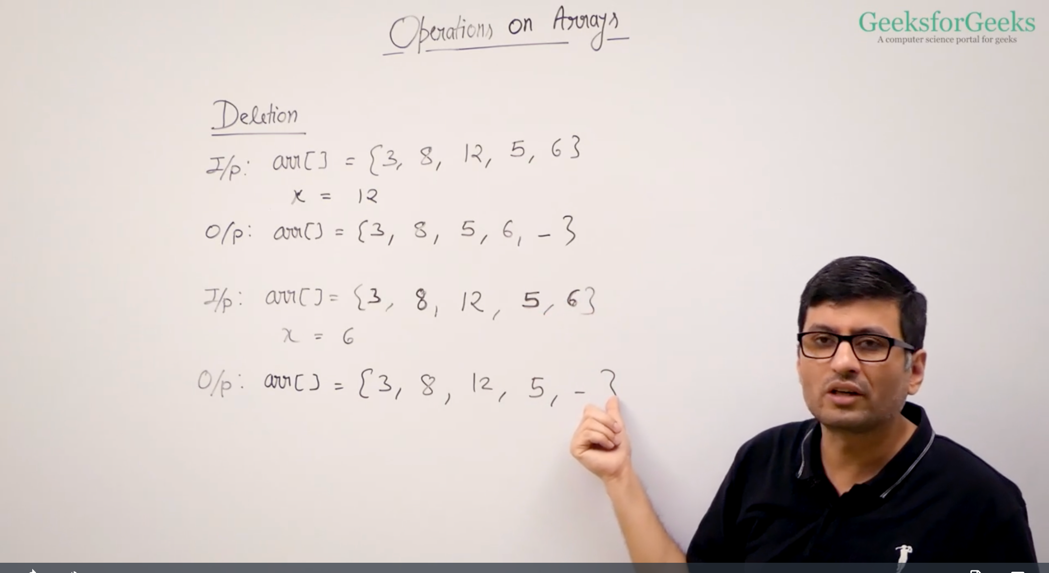 Operations on Arrays
GeeksforGeeks
A computer science portal for geeks
Deletion
I/p: arr[] = {3, 8, 12, 5, 6}
x = 12
O/p: arr[] = {3, 8, 5, 6, _}
I/p: arr[] = {3, 8, 12, 5, 6}
x = 6
O/p: arr[] = {3, 8, 12, 5, _}